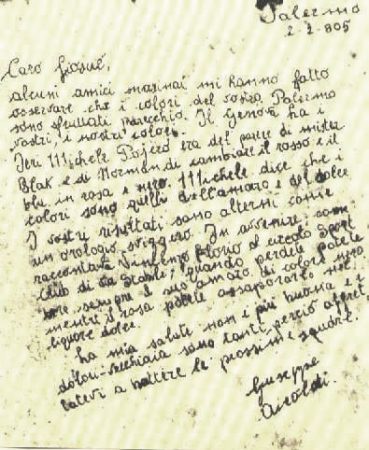 Palermo
2-2-905
Caro Giosuè,
alcuni amici marinai mi hanno fatto
osservare che i colori del vostro Palermo
sono sfruttati parecchio. Il Genova ha i
vostri, i nostri colori.
Ieri Michele Pojero era del parere di mister
Blak e di Norman di cambiare il rosso e il
blu in rosa e nero. Michele dice che i
colori sono quelli dell'amaro e del dolce
I vostri risultati sono alterni come
un orologio svizzero. In
raccontava Vincenzo Florio al circolo Sport
Club di via quando perdete potete
bere sempre il suo amaro di colore nero
mentre il rosa potete assaporarlo nel
liquore dolce.
La mia salute non è più buona e i
dolori-vecchiaia sono tanti, perciò affret
tatevi a battere le prossime squadre.
Giuseppe
Airoldi.